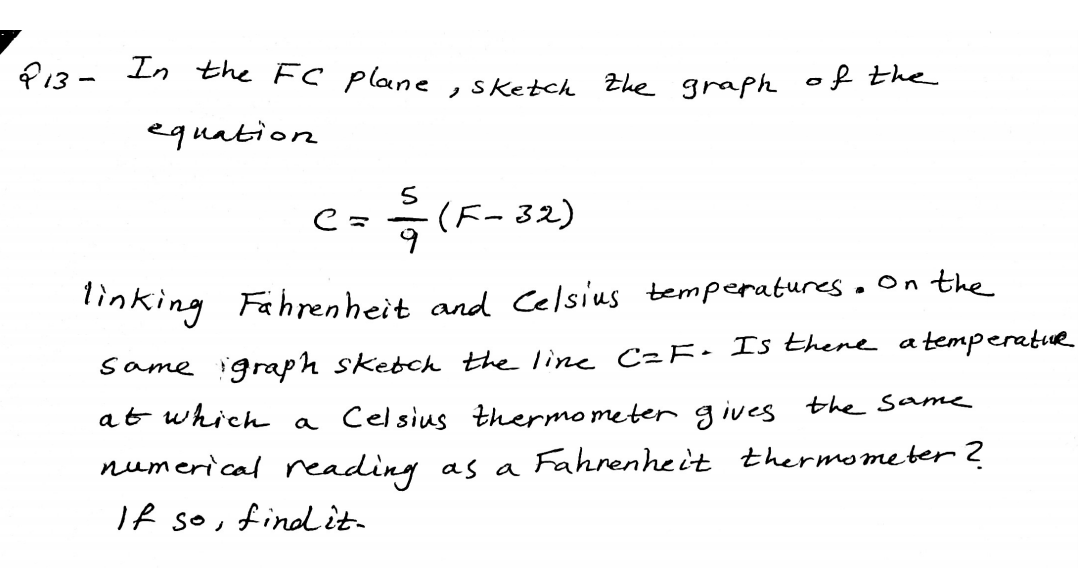 Q13- In the FC plane, sketch the graph of the
equation
C = 5/9 (F- 32)
linking Fahrenheit and Celsius temperatures. On the
same graph sketch the line C=F. Is there a temperature
at which a Celsius thermometer gives the same
numerical reading as a Fahrenheit thermometer?
If so, find it.